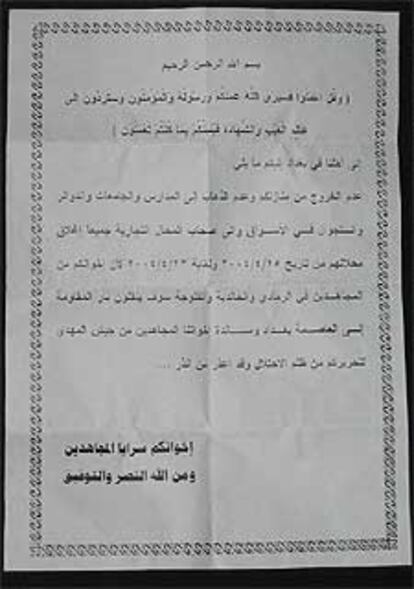 بسم الله الرحمن الرحيم
( وقل اعملوا فسيرى الله عملكم ورسوله والمؤمنون وستردون الى
عالم الغيب والشهادة فينبئكم بما كنتم تعملون )
إلى أهلنا في بغداد إليكم ما يلي
عدم الخروج من منازلكم وعدم الذهاب إلى المدارس والجامعات والدوائر
والتجول فسي الأسسواق والى أصحاب المحال التجارية جميعا إغلاق
محلاتهم من تاريخ ٢٠٠٤/٤/١٥ ولغاية ٢٠٠٤/٤/٢٣ لأن إخوانكم من
المجاهدين في الرمادي والخالدية والفلوجة سوف ينقلون نار المقاومة
إلسى العاصمة بغداد ومساندة إخواننا المجاهدين من جيش المهدي
لتحريركم من ظلم الاحتلال وقد أعذر من أنذر ...
إخوانكم سرايا المجاهدين
ومن الله النصر والتوفيق